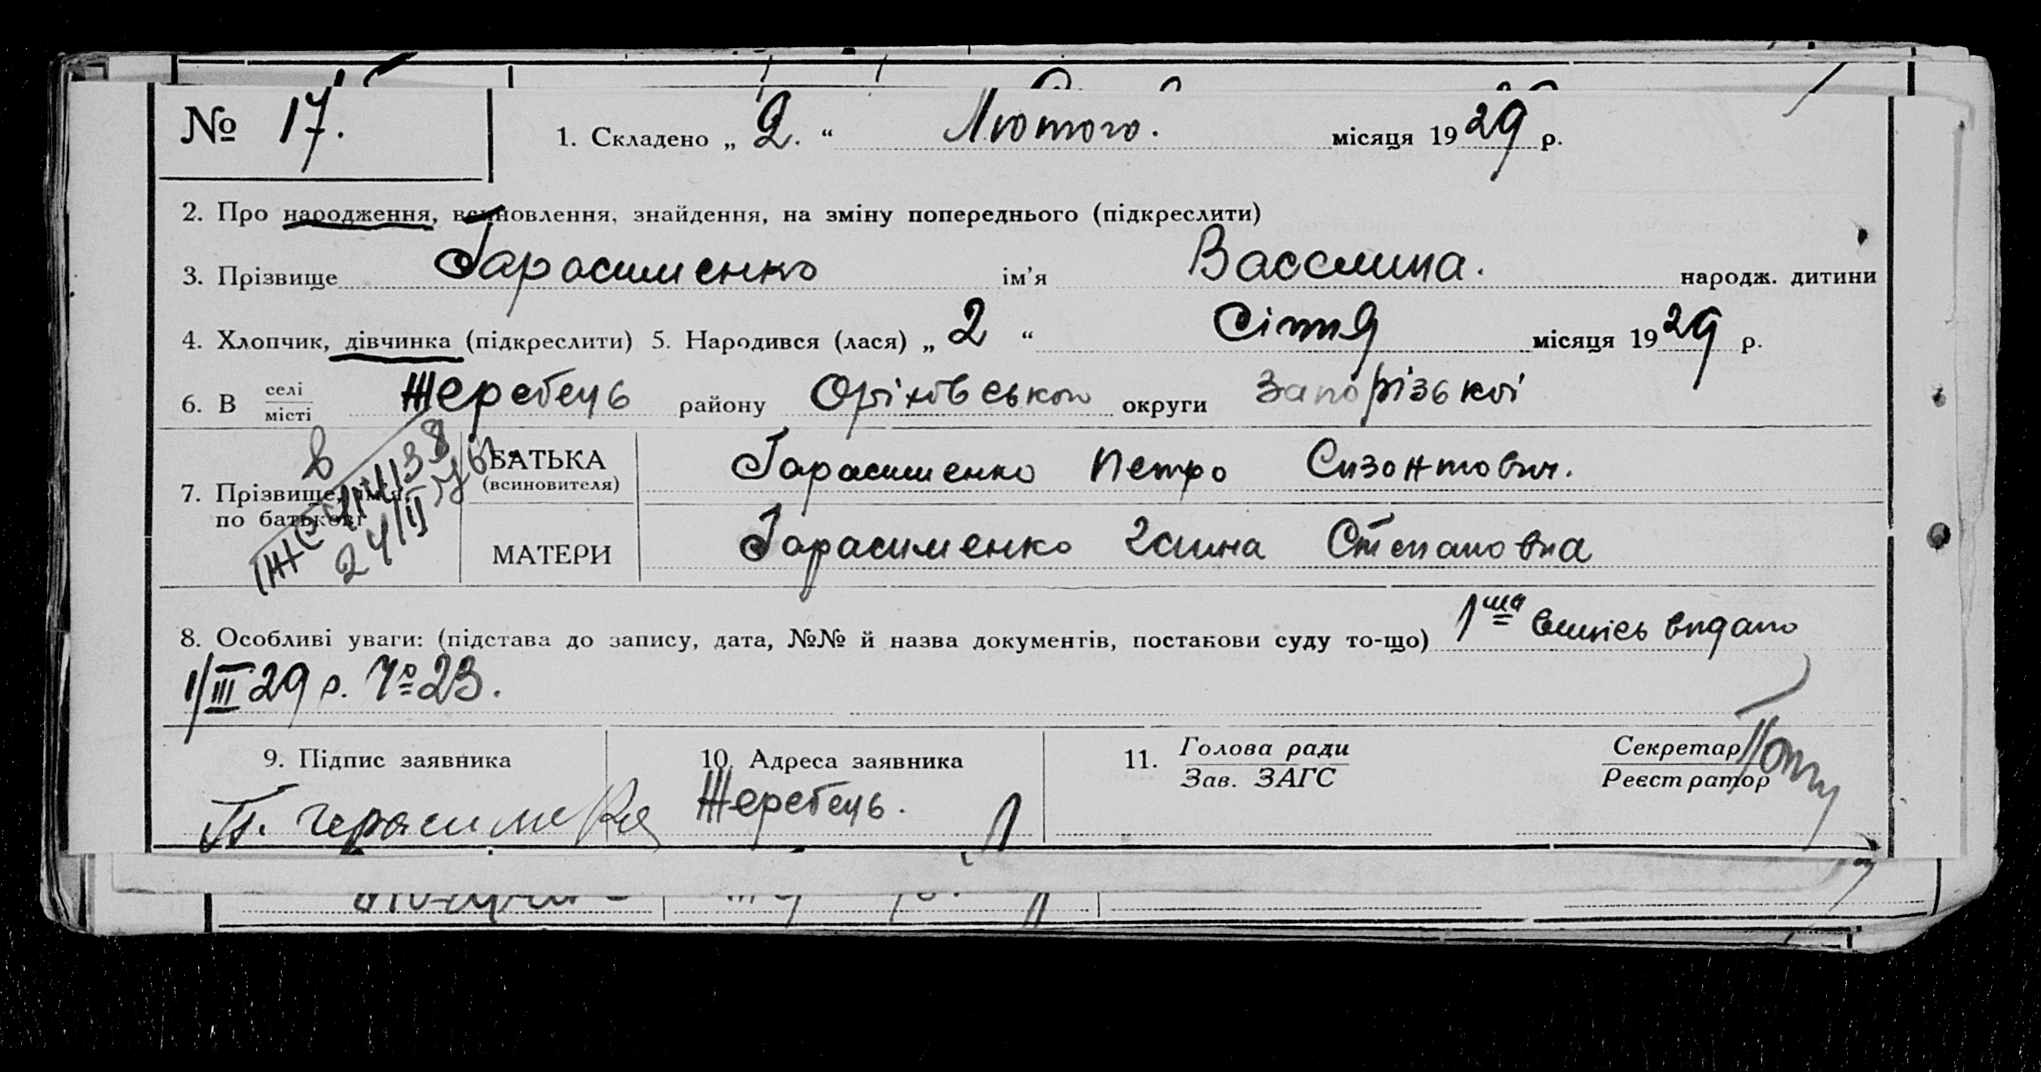 № 17. 1. Складено „ 2. “ Лютого. місяця 1929 р.
2. Про народження, всиновлення, знайдення, на зміну попереднього (підкреслити)
3. Прізвище Гарасименко ім'я Василина. народж. дитини
4. Хлопчик, дівчинка (підкреслити) 5. Народився (лася) „ 2 “ Січня місяця 1929 р.
6. В селі місті Жеребець району Оріхівського округи Запорізької
7. Прізвище, ім'я, по батькові
БАТЬКА (всиновителя) Гарасименко Петро Сизонтович.
МАТЕРИ Гарасименко Степановна
8. Особливі уваги: (підстава до запису, дата, №№ й назва документів, постанови суду то-що) 1ша випись видано
1/III 29 р. № 23.
9. Підпис заявника 10. Адреса заявника 11. Голова ради Зав. ЗАГС Секретар Реєстратор
П. Герасименко Жеребець.